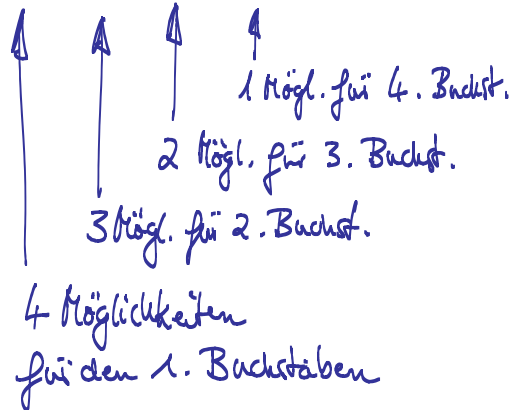 1 Mögl. für 4. Buchst.
2 Mögl. für 3. Buchst.
3 Mögl. für 2. Buchst.
4 Möglichkeiten
für den 1. Buchstaben